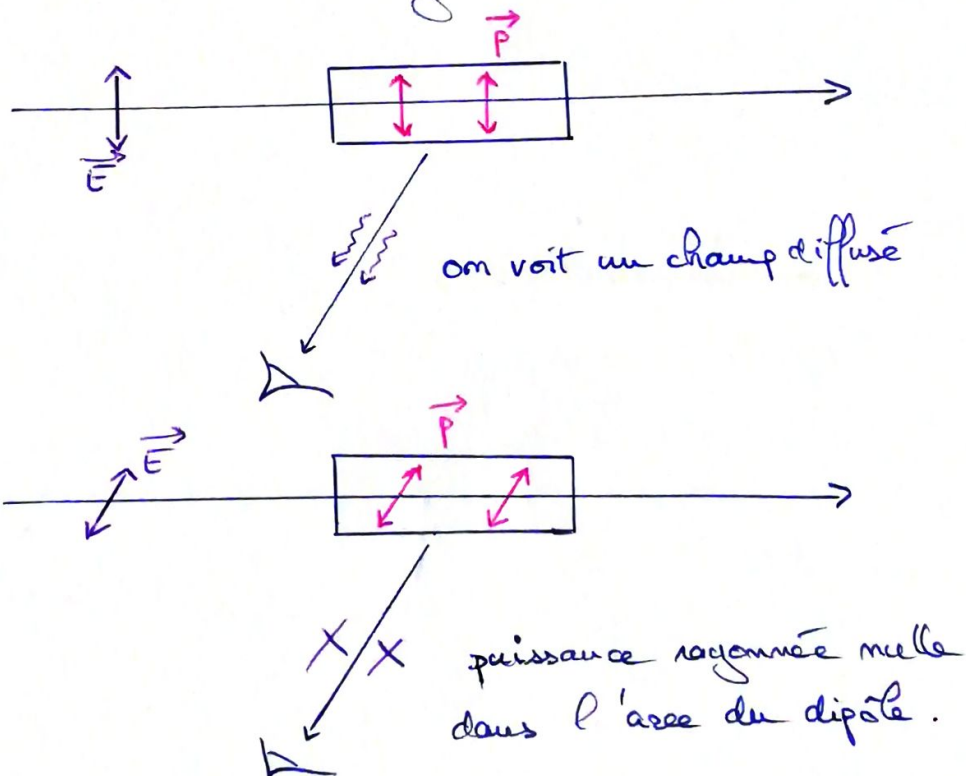 P
E
on voit un champ diffusé
P
E
puissance rayonnée nulle
dans l'axe du dipôle.